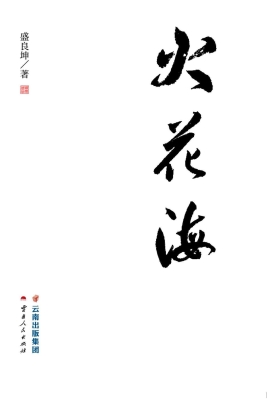 火花海
盛良坤/著
云南出版集团
云南人民出版社